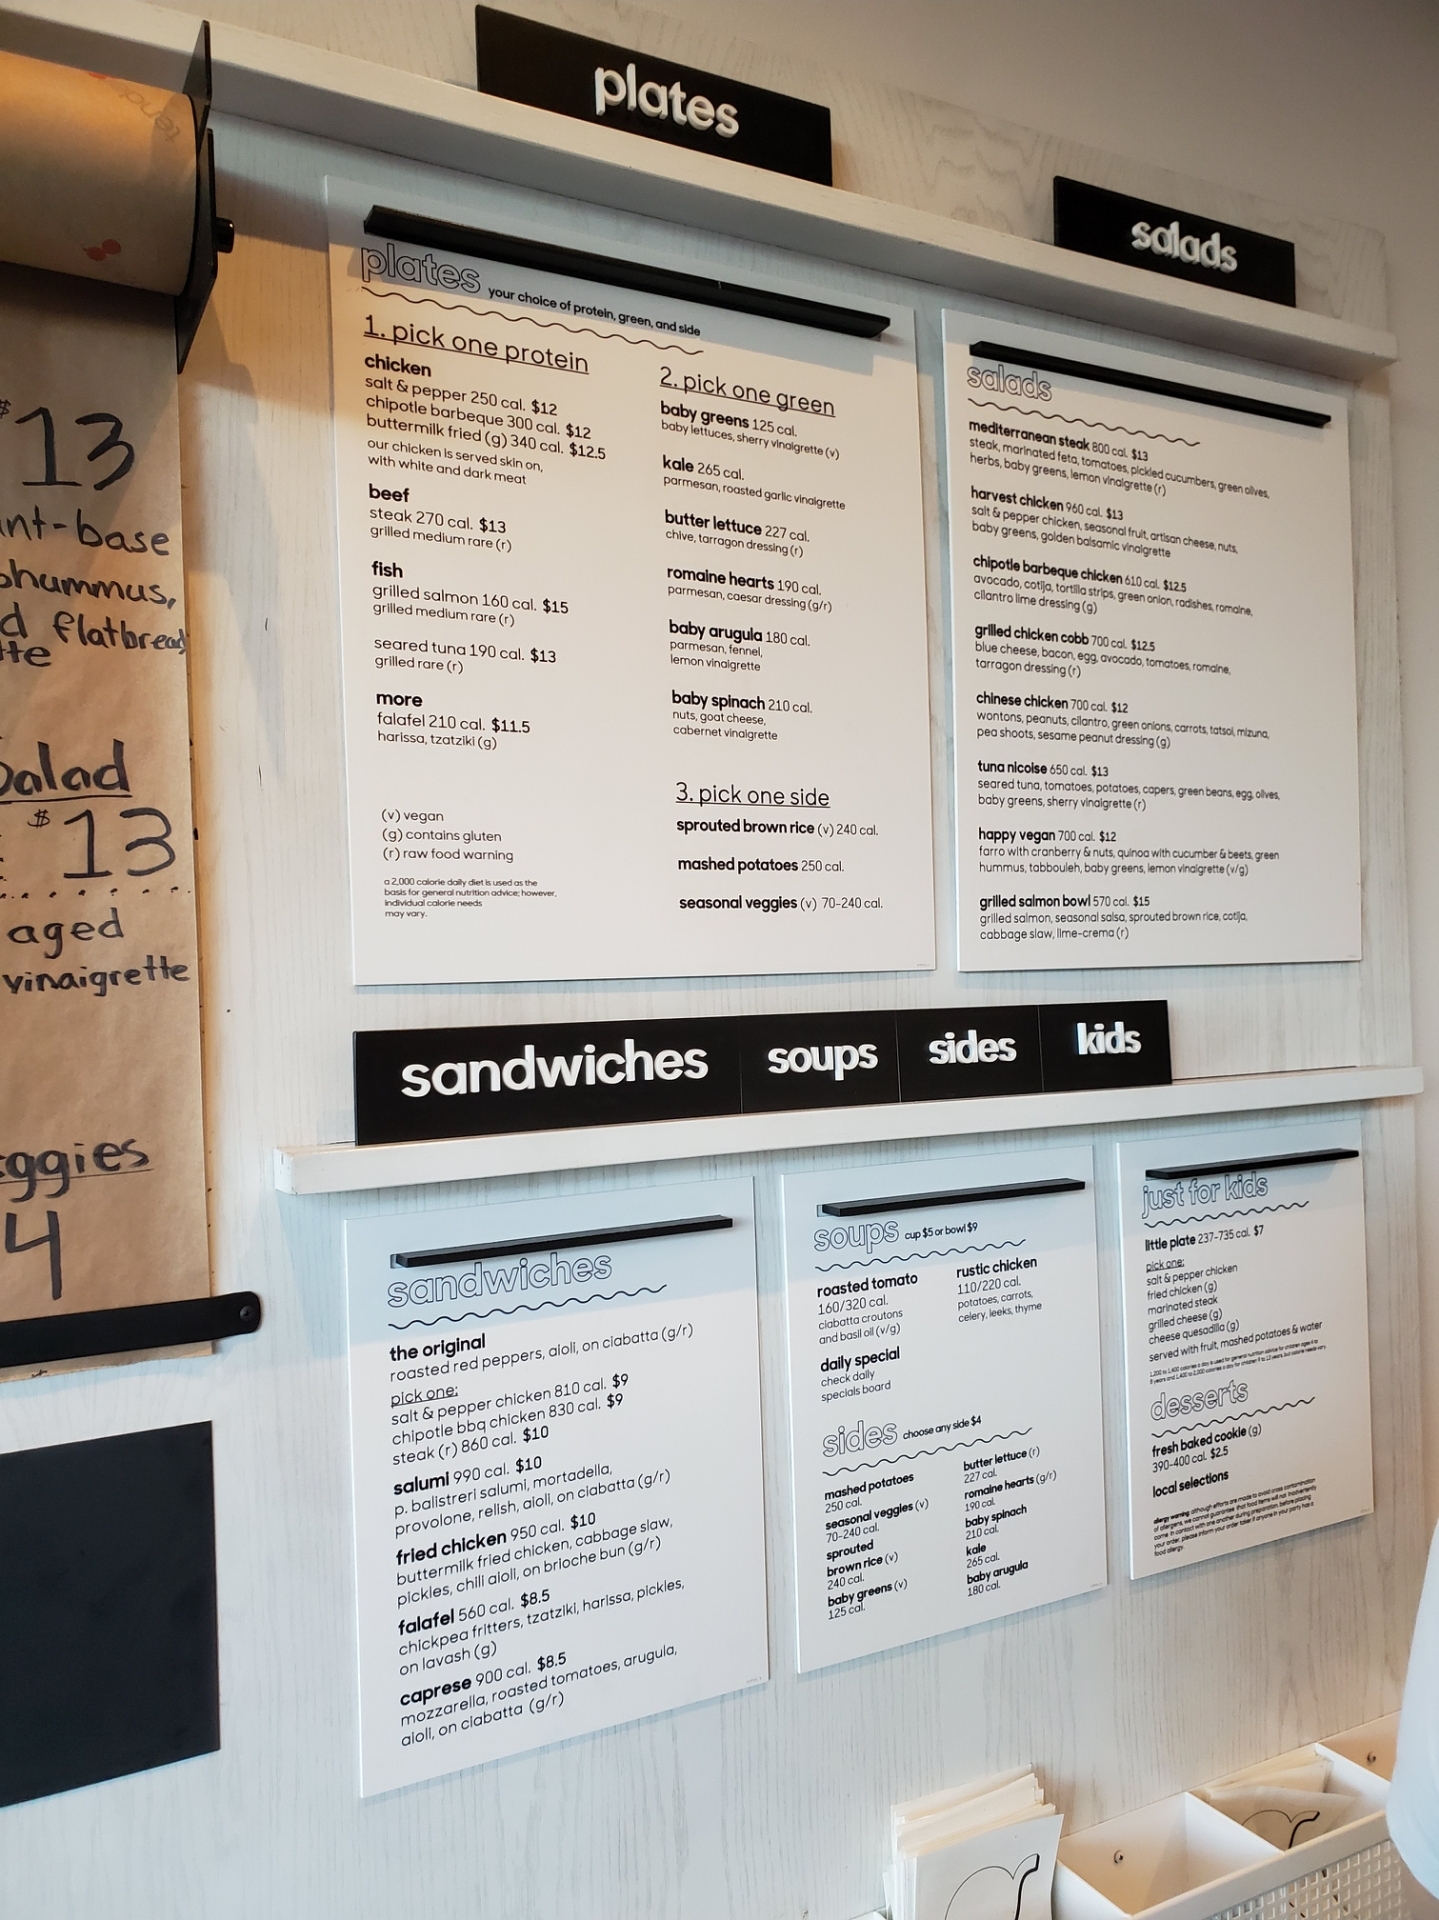 $13
nt-base
hummus,
d flatbread
te
Salad
$13
aged
vinaigrette
ggies
4
plates
salads
plates your choice of protein, green, and side
1. pick one protein
chicken
salt & pepper 250 cal. $12
chipotle barbeque 300 cal. $12
buttermilk fried (g) 340 cal. $12.5
our chicken is served skin on,
with white and dark meat
beef
steak 270 cal. $13
grilled medium rare (r)
fish
grilled salmon 160 cal. $15
grilled medium rare (r)
seared tuna 190 cal. $13
grilled rare (r)
more
falafel 210 cal. $11.5
harissa, tzatziki (g)
(v) vegan
(g) contains gluten
(r) raw food warning
a 2,000 calorie daily diet is used as the
basis for general nutrition advice; however,
individual calorie needs
may vary.
2. pick one green
baby greens 125 cal.
baby lettuces, sherry vinaigrette (v)
kale 265 cal.
parmesan, roasted garlic vinaigrette
butter lettuce 227 cal.
chive, tarragon dressing (r)
romaine hearts 190 cal.
parmesan, caesar dressing (g/r)
baby arugula 180 cal.
parmesan, fennel,
lemon vinaigrette
baby spinach 210 cal.
nuts, goat cheese,
cabernet vinaigrette
3. pick one side
sprouted brown rice (v) 240 cal.
mashed potatoes 250 cal.
seasonal veggies (v) 70-240 cal.
salads
mediterranean steak 800 cal. $13
steak, marinated feta, tomatoes, pickled cucumbers, green olives,
herbs, baby greens, lemon vinaigrette (r)
harvest chicken 960 cal. $13
salt & pepper chicken, seasonal fruit, artisan cheese, nuts,
baby greens, golden balsamic vinaigrette
chipotle barbeque chicken 610 cal. $12.5
avocado, cotija, tortilla strips, green onion, radishes, romaine,
cilantro lime dressing (g)
grilled chicken cobb 700 cal. $12.5
blue cheese, bacon, egg, avocado, tomatoes, romaine,
tarragon dressing (r)
chinese chicken 700 cal. $12
wontons, peanuts, cilantro, green onions, carrots, tatsoi, mizuna,
pea shoots, sesame peanut dressing (g)
tuna nicoise 650 cal. $13
seared tuna, tomatoes, potatoes, capers, green beans, egg, olives,
baby greens, sherry vinaigrette (r)
happy vegan 700 cal. $12
farro with cranberry & nuts, quinoa with cucumber & beets, green
hummus, tabbouleh, baby greens, lemon vinaigrette (v/g)
grilled salmon bowl 570 cal. $15
grilled salmon, seasonal salsa, sprouted brown rice, cotija,
cabbage slaw, lime-crema (r)
sandwiches soups sides kids
sandwiches
the original
roasted red peppers, aioli, on ciabatta (g/r)
pick one:
salt & pepper chicken 810 cal. $9
chipotle bbq chicken 830 cal. $9
steak (r) 860 cal. $10
salumi 990 cal. $10
p. balistreri salumi, mortadella,
provolone, relish, aioli, on ciabatta (g/r)
fried chicken 950 cal. $10
buttermilk fried chicken, cabbage slaw,
pickles, chili aioli, on brioche bun (g/r)
falafel 560 cal. $8.5
chickpea fritters, tzatziki, harissa, pickles,
on lavash (g)
caprese 900 cal. $8.5
mozzarella, roasted tomatoes, arugula,
aioli, on ciabatta (g/r)
soups cup $5 or bowl $9
roasted tomato
160/320 cal.
ciabatta croutons
and basil oil (v/g)
daily special
check daily
specials board
rustic chicken
110/220 cal.
potatoes, carrots,
celery, leeks, thyme
sides choose any side $4
mashed potatoes
250 cal.
seasonal veggies (v)
70-240 cal.
sprouted
brown rice (v)
240 cal.
baby greens (v)
125 cal.
butter lettuce (r)
227 cal.
romaine hearts (g/r)
190 cal.
baby spinach
210 cal.
kale
265 cal.
baby arugula
180 cal.
just for kids
little plate 237-735 cal. $7
pick one:
salt & pepper chicken
fried chicken (g)
marinated steak
grilled cheese (g)
cheese quesadilla (g)
served with fruit, mashed potatoes & water
1,200 to 1,400 calories a day is used for general nutrition advice for children ages 4 to
8 years and 1,400 to 2,000 calories a day for children 9 to 13 years, but calorie needs vary.
desserts
fresh baked cookie (g)
390-400 cal. $2.5
local selections
allergy warning: although efforts are made to avoid cross contamination
of allergens, we cannot guarantee that food items will not inadvertently
come in contact with one another during preparation. before placing
your order, please inform your order taker if anyone in your party has a
food allergy.